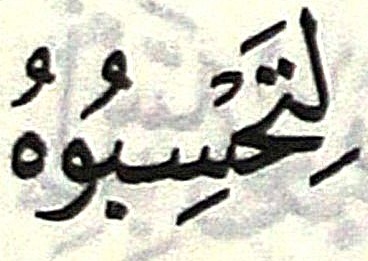 لِتَحْسِبُوهُ